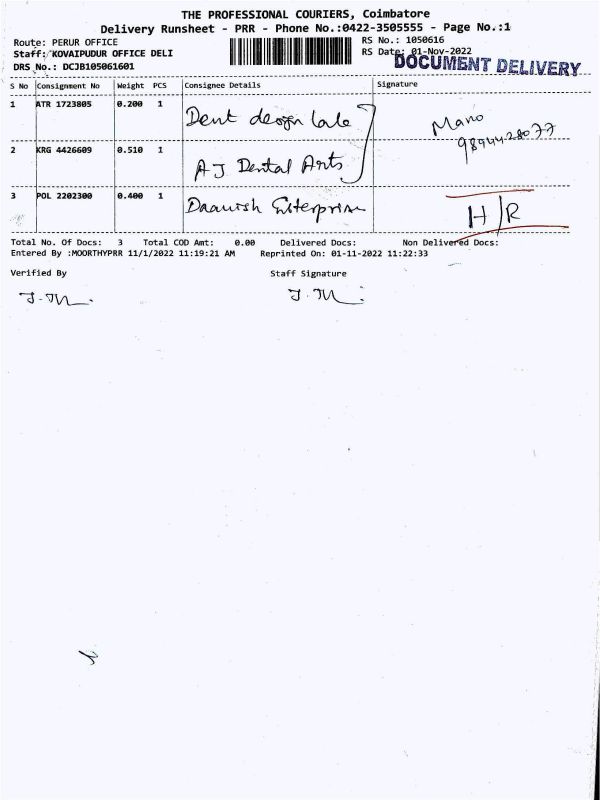 THE PROFESSIONAL COURIERS, Coimbatore
Delivery Runsheet - PRR - Phone No.:0422-3505555 - Page No.:1
Route: PERUR OFFICE
RS No.: 1050616
Staff: KOVAIPUDUR OFFICE DELI
RS Date: 01-Nov-2022
DRS No.: DCJB105061601
DOCUMENT DELIVERY
S No Consignment No Weight PCS Consignee Details Signature
1 ATR 1723805 0.200 1 Dent design
Mano
2 KRG 4426609 0.510 1 AJ Dental Arts
3 POL 2202300 0.400 1 Daanish Enterprise H/R
Total No. Of Docs: 3 Total COD Amt: 0.00 Delivered Docs: Non Delivered Docs:
Entered By :MOORTHYPRR 11/1/2022 11:19:21 AM Reprinted On: 01-11-2022 11:22:33
Verified By Staff Signature